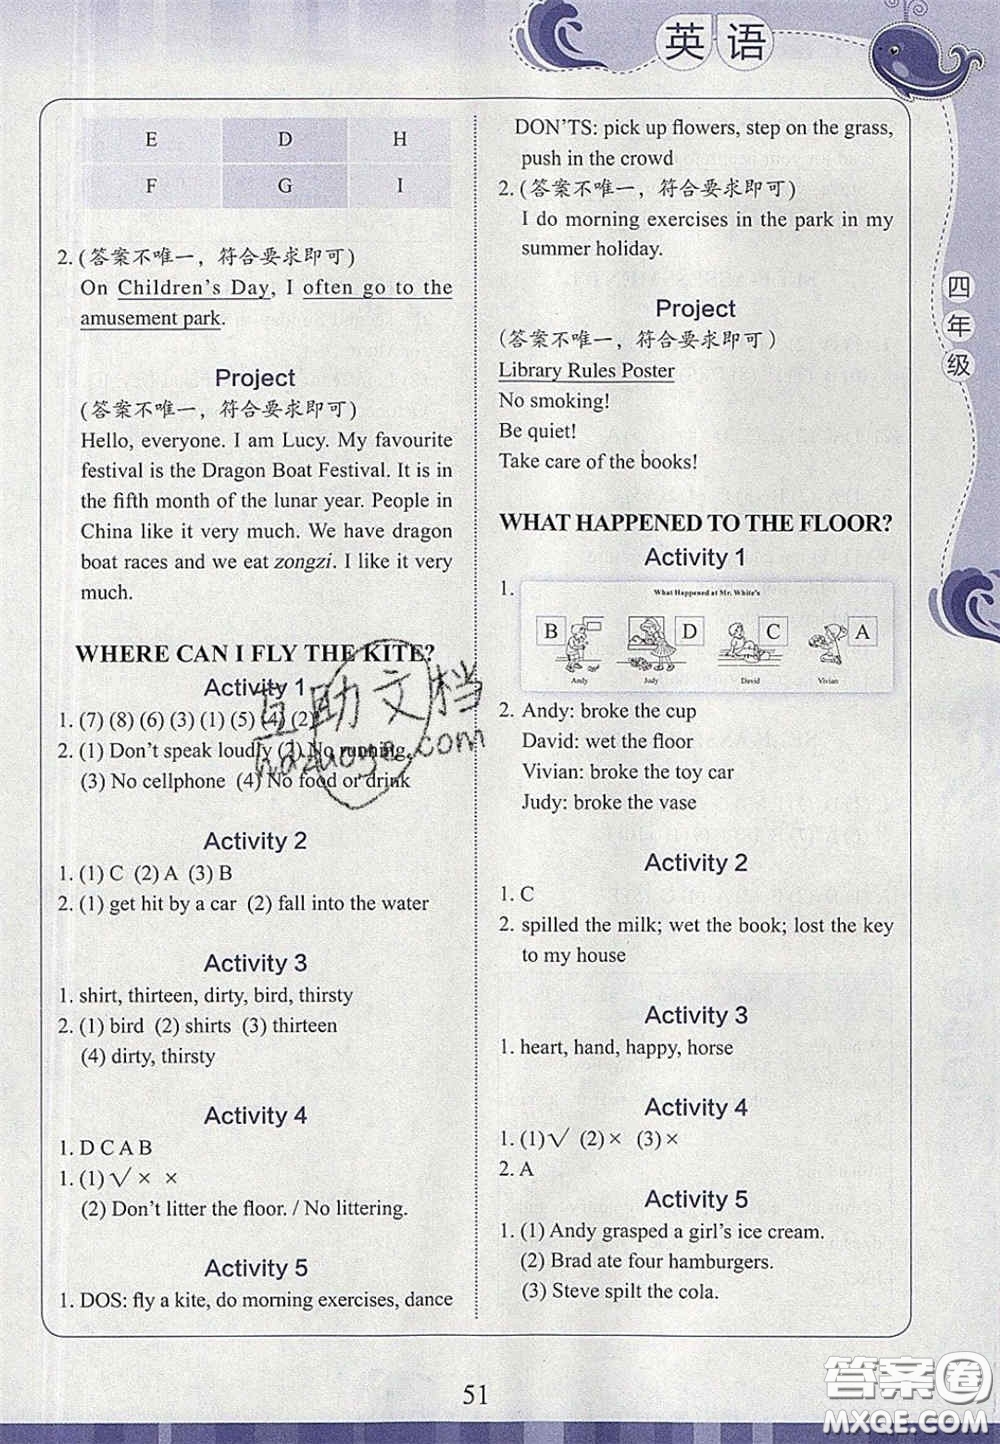 英语
四年级
E D H
F G I
2. (答案不唯一，符合要求即可)
On Children's Day, I often go to the
amusement park.
Project
(答案不唯一，符合要求即可)
Hello, everyone. I am Lucy. My favourite
festival is the Dragon Boat Festival. It is in
the fifth month of the lunar year. People in
China like it very much. We have dragon
boat races and we eat zongzi. I like it very
much.
WHERE CAN I FLY THE KITE?
Activity 1
1. (7) (8) (6) (3) (1) (5) (4) (2)
2. (1) Don't speak loudly (2) No running.
(3) No cellphone (4) No food or drink
Activity 2
1. (1) C (2) A (3) B
2. (1) get hit by a car (2) fall into the water
Activity 3
1. shirt, thirteen, dirty, bird, thirsty
2. (1) bird (2) shirts (3) thirteen
(4) dirty, thirsty
Activity 4
1. D C A B
1. (1)√ × ×
(2) Don't litter the floor. / No littering.
Activity 5
1. DOS: fly a kite, do morning exercises, dance
DON'TS: pick up flowers, step on the grass,
push in the crowd
2. (答案不唯一，符合要求即可)
I do morning exercises in the park in my
summer holiday.
Project
(答案不唯一，符合要求即可)
Library Rules Poster
No smoking!
Be quiet!
Take care of the books!
WHAT HAPPENED TO THE FLOOR?
Activity 1
1.
What Happened at Mr. White's
B D C A
Andy Judy David Vivian
2. Andy: broke the cup
David: wet the floor
Vivian: broke the toy car
Judy: broke the vase
Activity 2
1. C
2. spilled the milk; wet the book; lost the key
to my house
Activity 3
1. heart, hand, happy, horse
Activity 4
1. (1)√ (2)× (3)×
2. A
Activity 5
1. (1) Andy grasped a girl's ice cream.
(2) Brad ate four hamburgers.
(3) Steve spilt the cola.
互助文档
hazuoye.com
51
答案圈
MXQE.COM